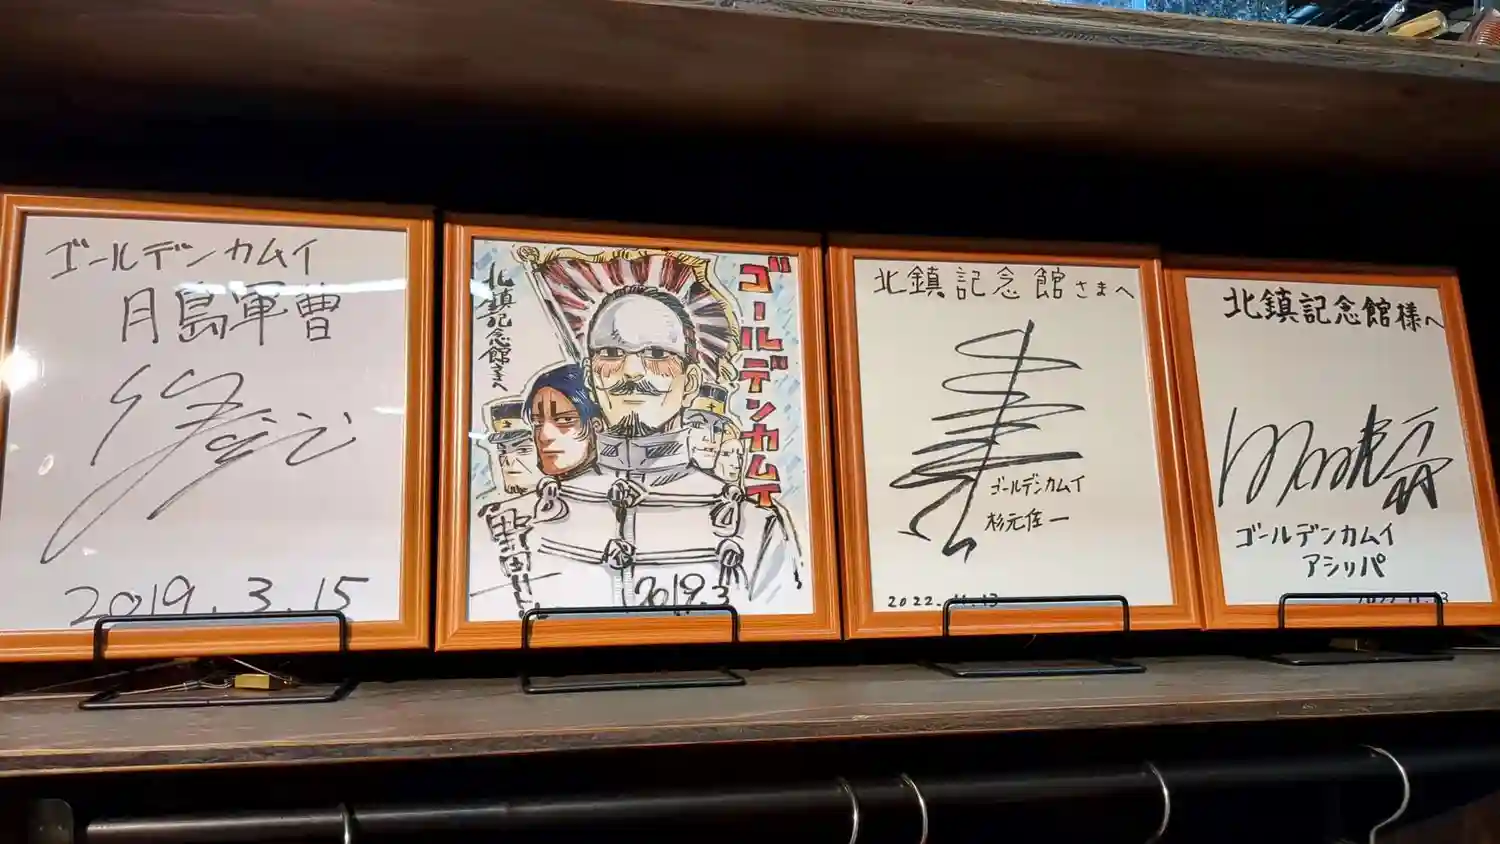 ゴールデンカムイ
月島軍曹
2019.3.15
ゴールデンカムイ
北鎮記念館さまへ
野田
2019.3
北鎮記念館さまへ
ゴールデンカムイ
杉元佐一
2022.11.13
北鎮記念館様へ
ゴールデンカムイ
アシリパ